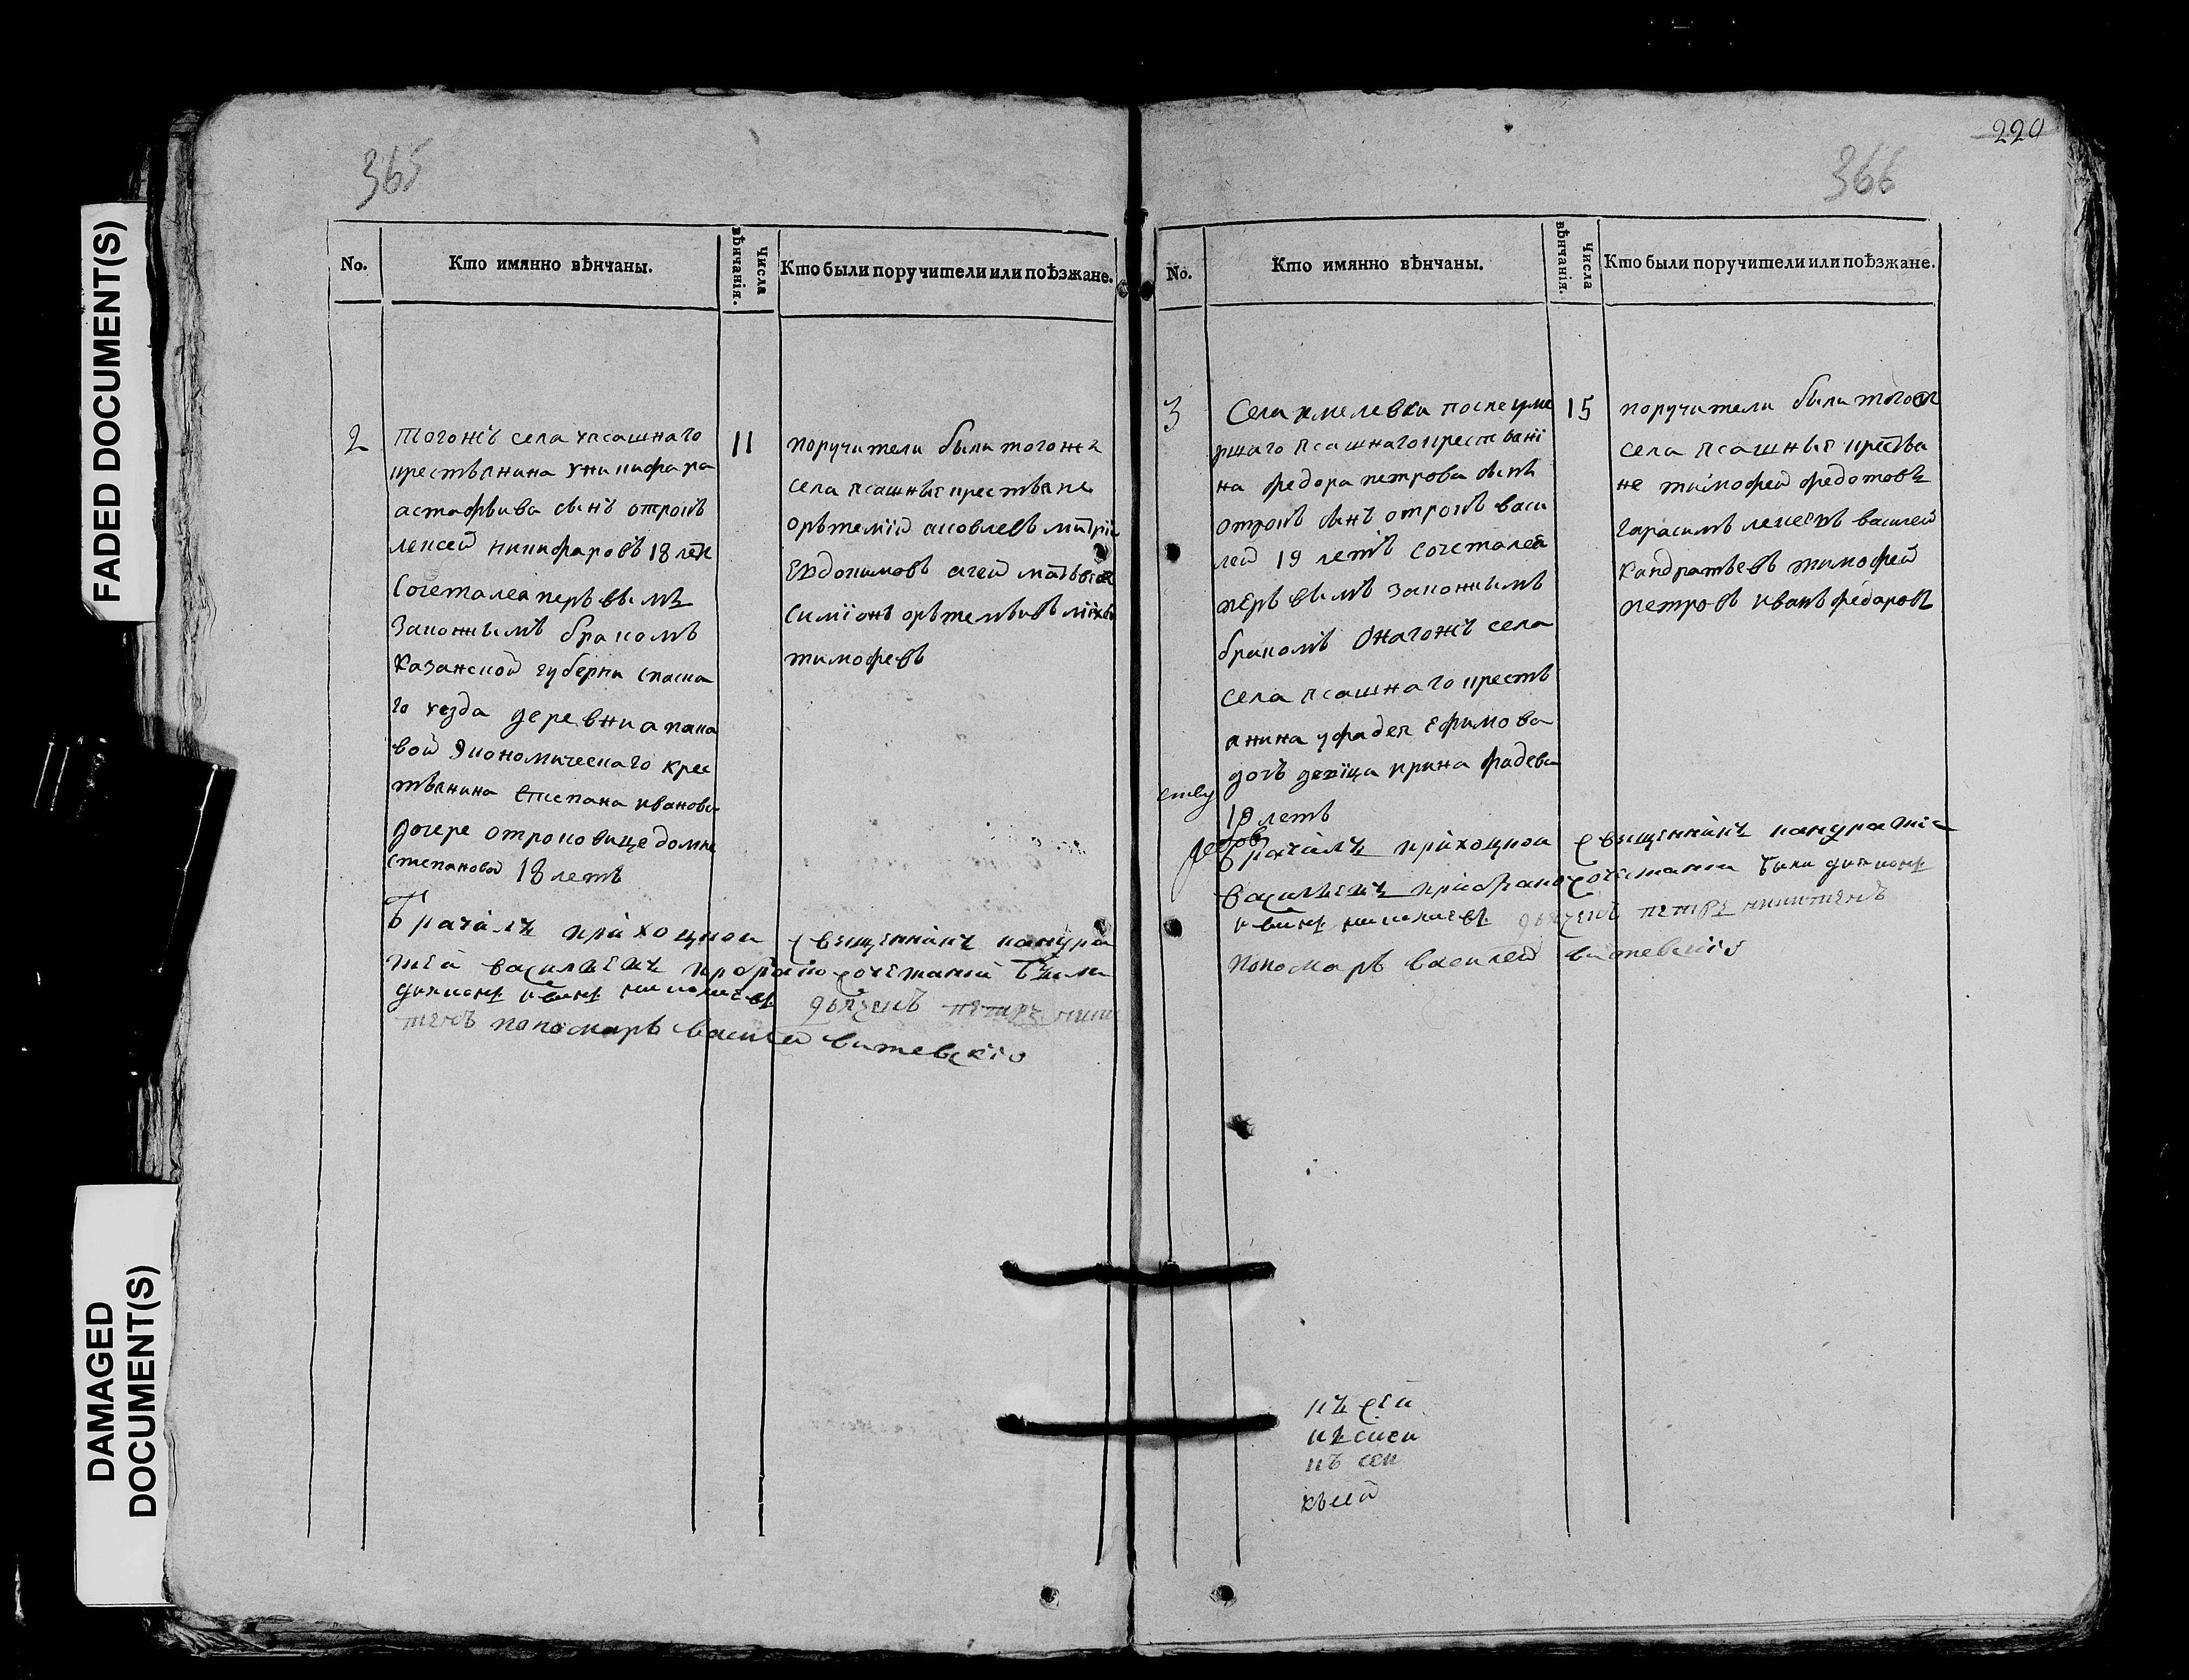 FADED DOCUMENT(S)
DAMAGED
DOCUMENT(S)
365
No.
Кто имянно вѣнчаны.
Числа
вѣнчанія.
Кто были поручители или поѣзжане.
2
Тогожъ села ясашнаго
крестьянина
астафьива сынъ отрокъ
лексей никифаровъ 18 летъ
Сочеталса перьвымъ
Законнымъ бракомъ
Казанской губерни спаска
го уезда деревни апака
вой Экономическаго крес
тьянина Степана иванова
дочере отроковице домне
степановой 18 летъ
11
поручители были тогожа
села ясашные крестьяне
орьтемїй аковлевъ
Евдокимовъ агей
Симїонъ орьтемьивъ
тимофевъ
Брачалъ приходной священникъ кандра
тей васильевъ при сочетании были
дияконъ дьячекъ петръ ники
тенъ пономарь василей витевскїй
220
366
No.
Кто имянно вѣнчаны.
Числа
вѣнчанія.
Кто были поручители или поѣзжане.
3
Села хмелевки после уме
ршаго ясашнаго крестьяни
на федора петрова сынъ
отрокъ сынъ отрокъ васи
лей 19 летъ сочеталса
перьвымъ законнымъ
бракомъ Онагожъ села
села ясашнаго кресть
янина уфадея Ефимова
дочъ девїца ирина фадева
19 летъ
15
поручители были тогож
села ясашные крества
не тимофей федотовъ
гарасимъ лексевъ василей
кандратьевъ тимофей
петровъ иванъ федаровъ
Брачалъ приходной священникъ кандратие
васильевъ при сочетании были дияконъ
дьячекъ петръ никитенъ
пономарь василей витевскїй